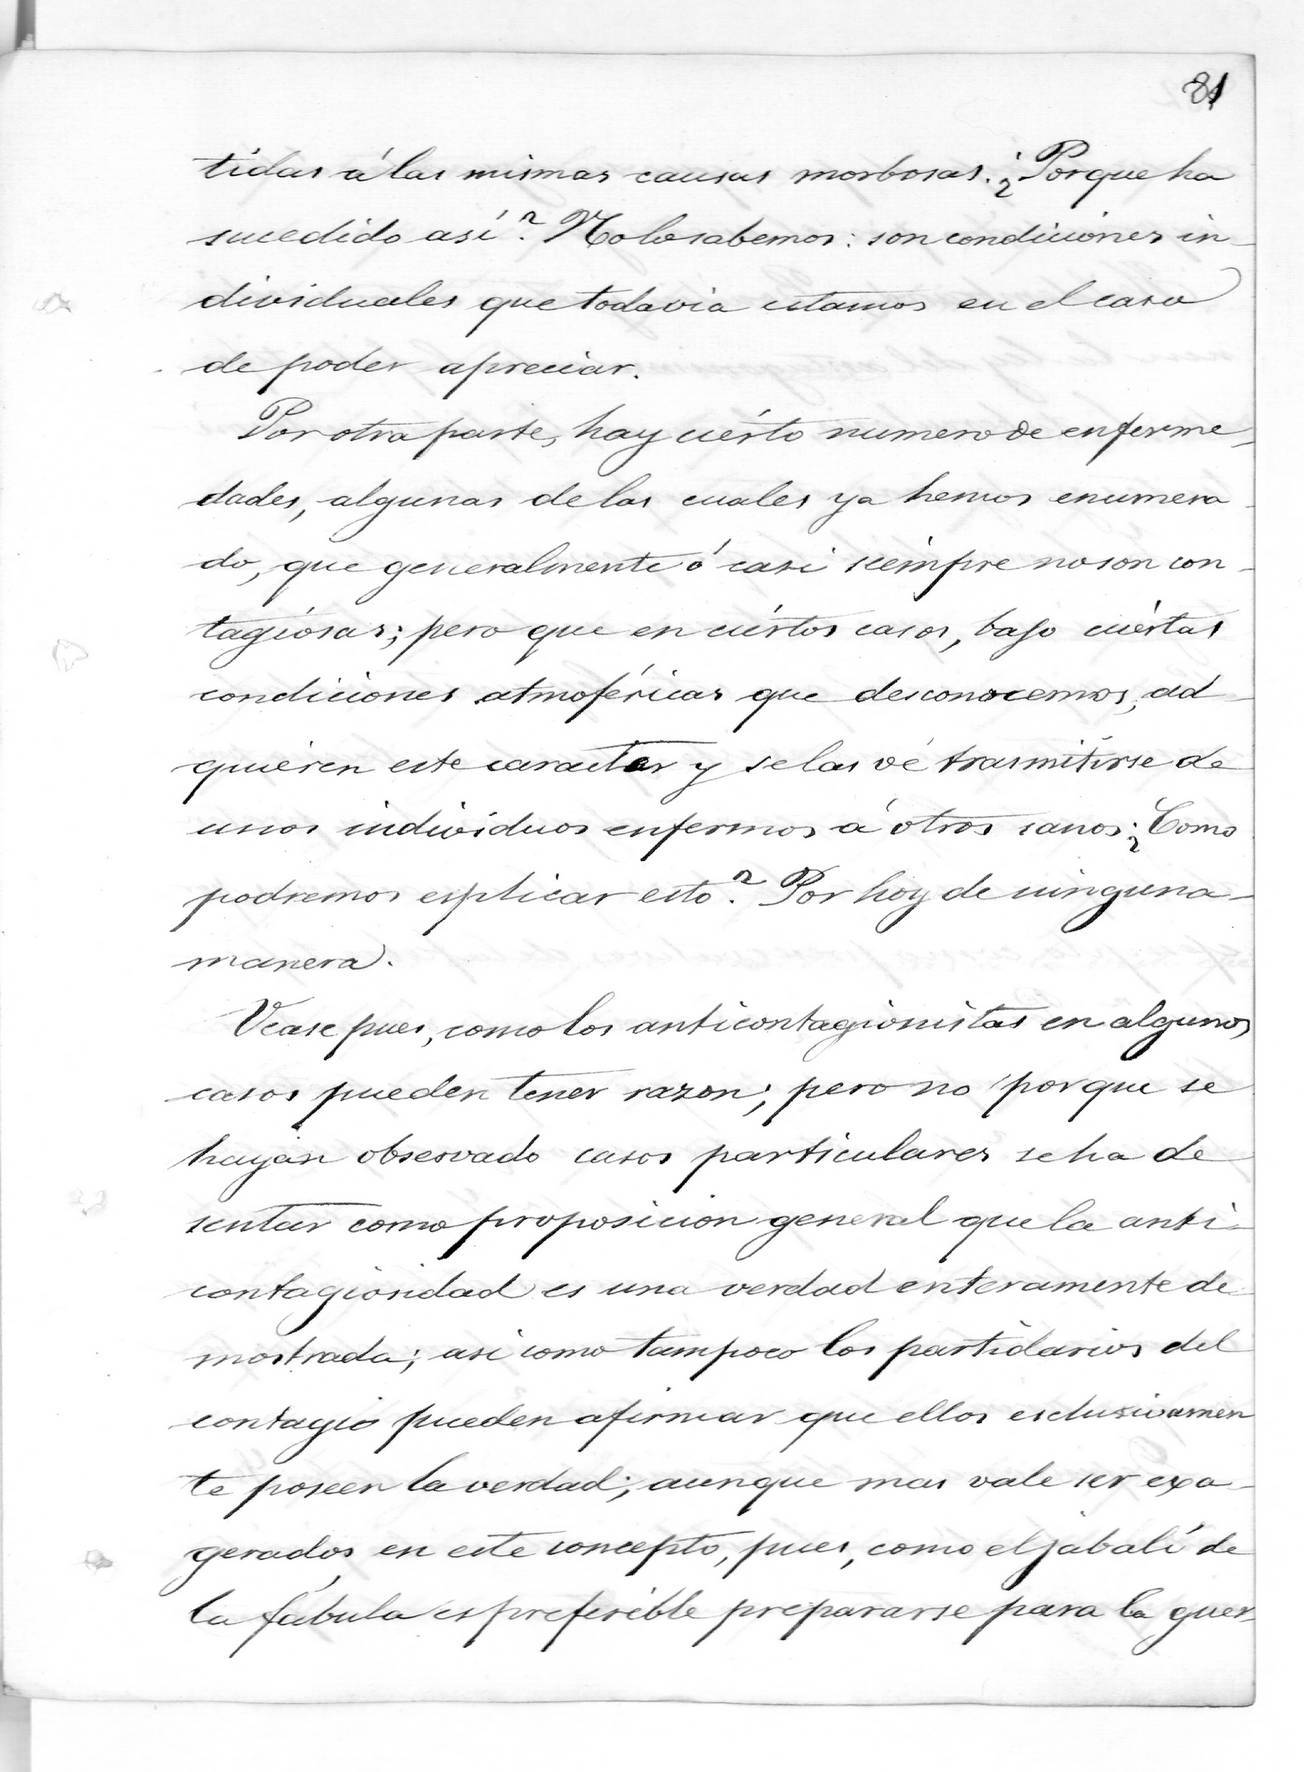 81
tidas á las mismas causas morbosas. ¿Porque ha
sucedido así? No lo sabemos: son condiciones in-
dividuales que todavia estamos en el caso
de poder apreciar.
Por otra parte, hay ciérto numero de enferme-
dades, algunas de las cuales ya hemos enumera-
do, que generalmente ó casi siempre no son con-
tagiósas; pero que en ciértos casos, bajo ciértas
condiciones atmoféricas que desconocemos, ad-
quiéren este caracter y se las vé trasmitirse de
unos individuos enfermos á otros sanos: ¿Como
podremos esplicar esto? Por hoy de ninguna-
manera.
Vease pues, como los anticontagionistas en algunos
casos pueden tener razon; pero no porque se
hayan observado casos particulares se ha de
sentar como proposicion general que la anti-
contagiosidad es una verdad enteramente de-
mostrada; asi como tampoco los partidarios del
contagio pueden afirmar que ellos esclusivamen
te poseen la verdad; aunque mas vale ser exa-
gerados, en este concepto, pues, como el jabalí de
la fábula es preferible prepararse para la guer-